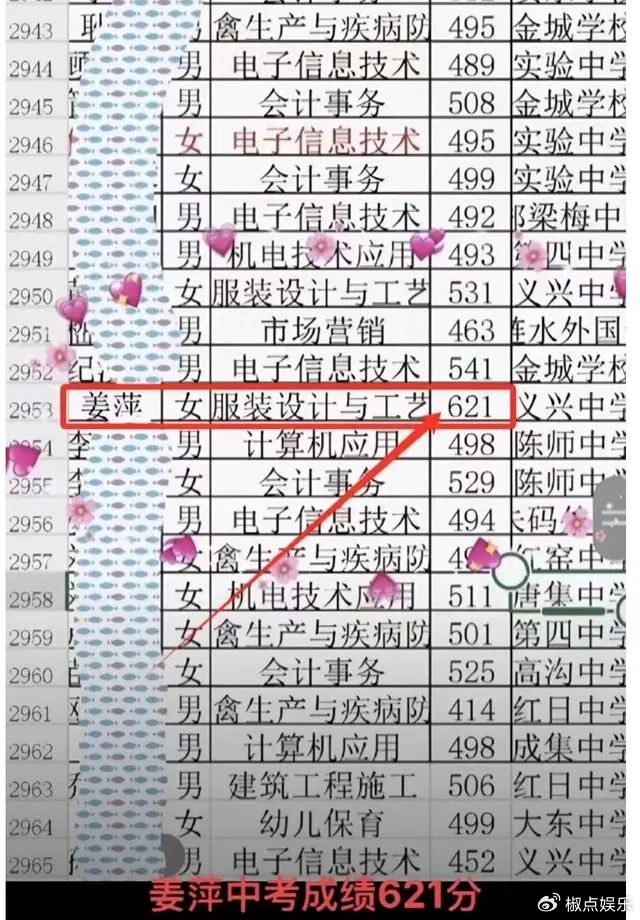 2943 职 男 禽生产与疾病防 495 金城学校
2944 顾 男 电子信息技术 489 实验中学
2945 男 会计事务 508 金城学校
2946 女 电子信息技术 495 实验中学
2947 女 会计事务 499 实验中学
2948 男 电子信息技术 492 郑梁梅中
2949 男 机电技术应用 493 第四中学
2950 女 服装设计与工艺 531 义兴中学
2951 嵇 男 市场营销 463 涟水外国
2952 纪 男 电子信息技术 541 金城学校
2953 姜萍 女 服装设计与工艺 621 义兴中学
2954 李 男 计算机应用 498 陈师中学
2955 李 女 会计事务 529 陈师中学
2956 男 电子信息技术 494 朱码
2957 女 禽生产与疾病防 红窑中学
2958 女 机电技术应用 511 唐集中学
2959 女 禽生产与疾病防 501 第四中学
2960 女 会计事务 525 高沟中学
2961 男 禽生产与疾病防 414 红日中学
2962 男 计算机应用 498 成集中学
2963 男 建筑工程施工 506 红日中学
2964 女 幼儿保育 499 大东中学
2965 男 电子信息技术 452 义兴中学
姜萍中考成绩621分
椒点娱乐